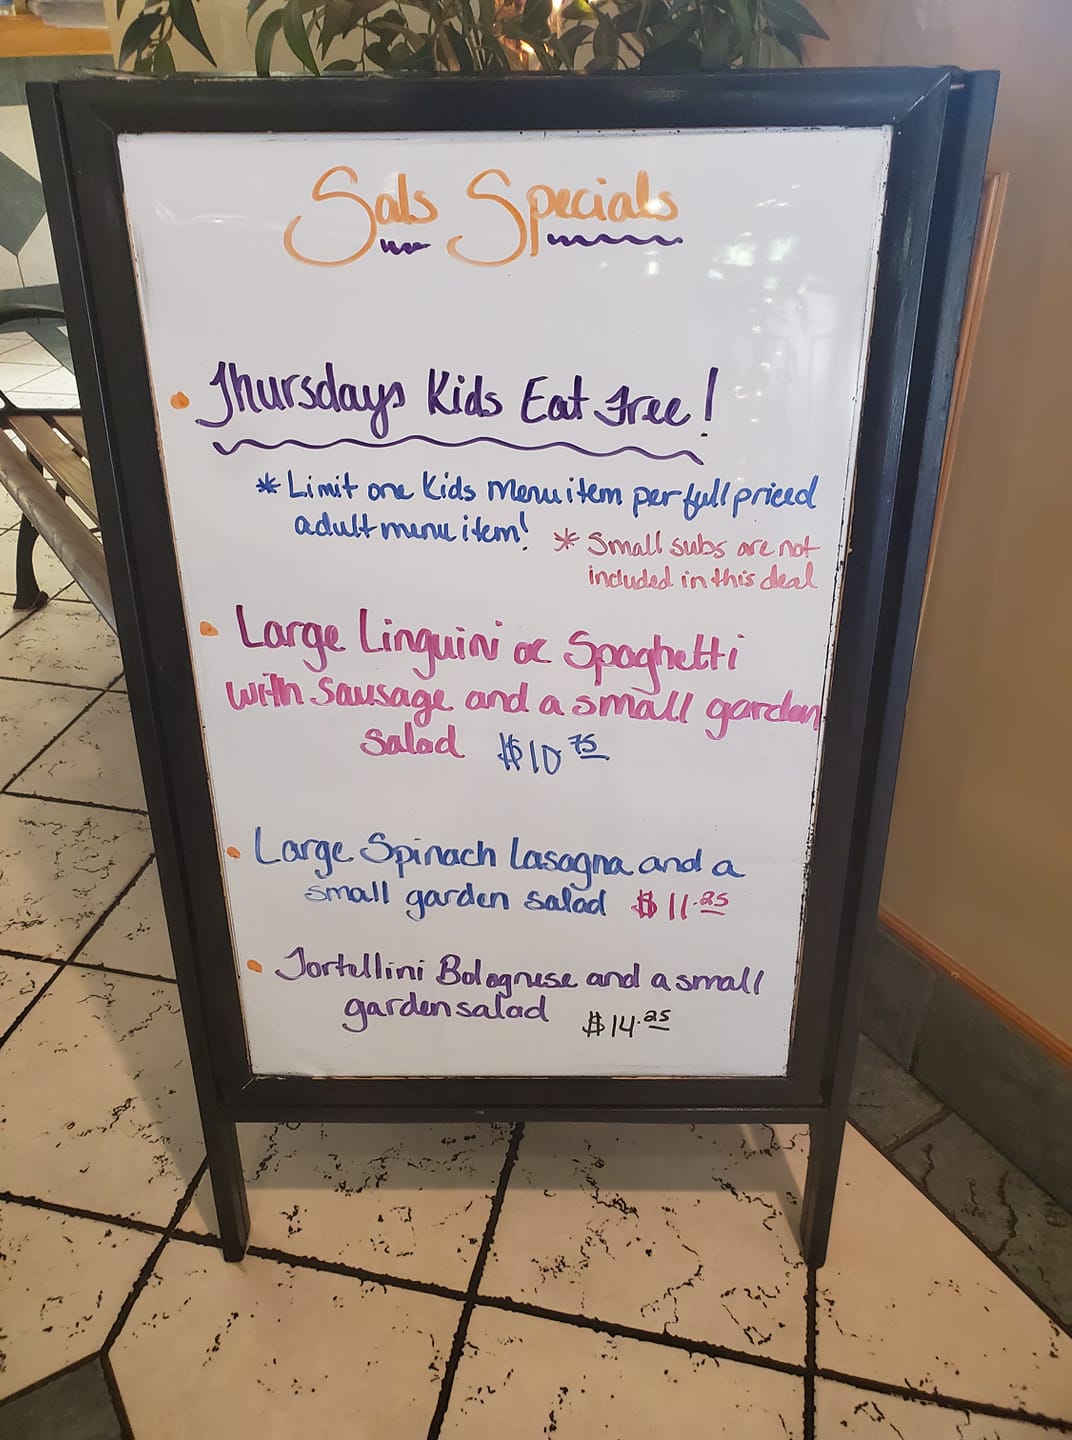 Sals Specials
• Thursdays Kids Eat Free!
* Limit one Kids Menu item per full priced
adult menu item!
* Small subs are not
included in this deal
• Large Linguini or Spaghetti
with sausage and a small garden
salad $10 75
• Large Spinach Lasagna and a
small garden salad $11.25
• Tortellini Bolognese and a small
garden salad $14.25